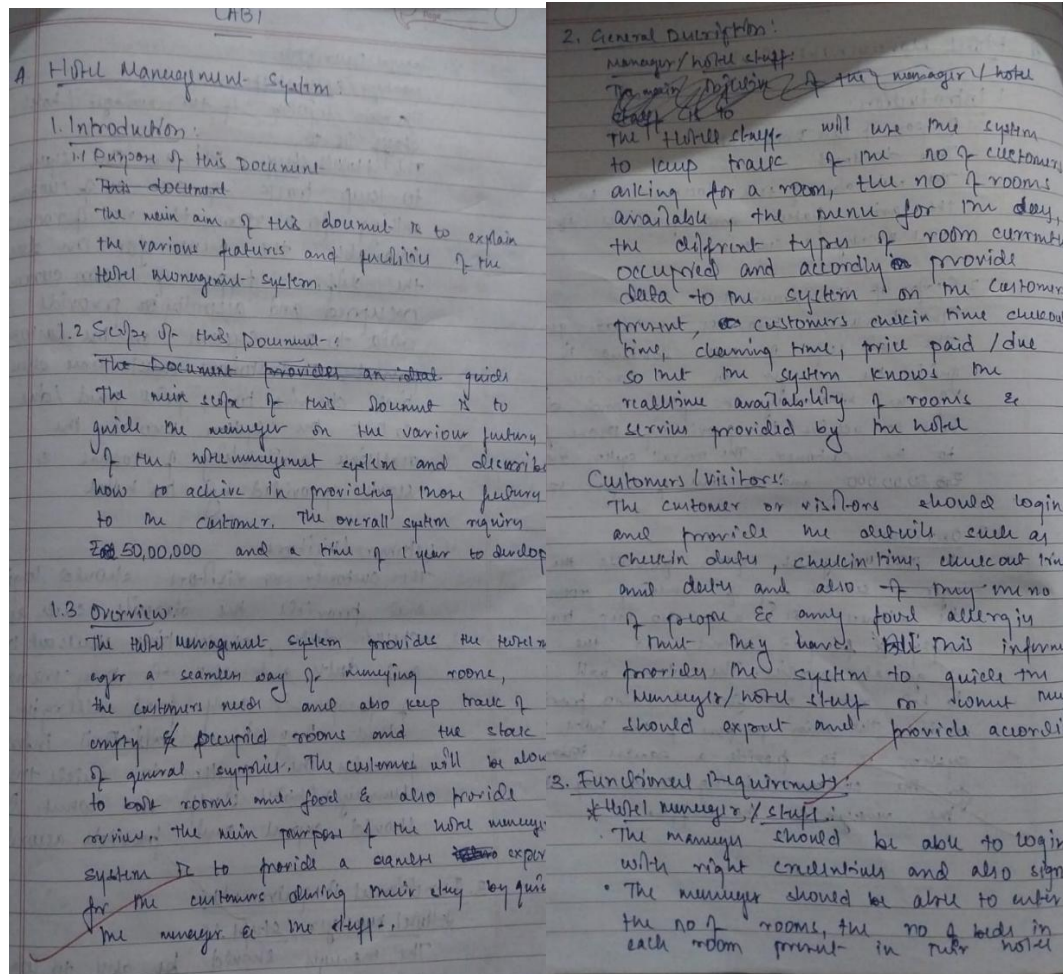 LAB1
A Hotel Management System
1. Introduction:
1.1 Purpose of this Document
This document
The main aim of this document is to explain
the various features and facilities of the
Hotel management system.
1.2 Scope of this Document:
The Document provides an ideal guide
The main scope of this Document is to
guide the manager on the various
of the hotel management system and describe
how to achive in providing those
to the customer. The overall system
50,00,000 and a time of 1 year to develop
1.3 Overview:
The Hotel Management system provides the Hotel
ager a seamless way of managing rooms,
the customers needs and also keep track of
empty & occupied rooms and the stock
of general supplies. The customers will be
to book rooms and food & also provide
reviews. The main purpose of the hotel
system is to provide a exper
for the customers during their stay by
the manager & the staff.
2. General Description:
Manager/hotel staff:
The main of the manager / hotel
staff is to
The Hotel staff will use the system
to keep track of the no of customers
asking for a room, the no of rooms
available, the menu for the day,
the types of room
occupied and accordly provide
data to the system on the customer
present, customers checkin time checkout
time, cleaning time, price paid / due
so that the system knows the
realtime availability of rooms &
servies provided by the hotel
Customers / visitors:
The customer or visitors should login
and provide the details such as
checkin date, checkin time, checkout
and date and also the no
of people & any food
that they have. This
provides the system to guide the
Manager/hotel staff on
should expect and provide
3. Functional Requirements:
* Hotel manager / staff:
• The manager should be able to login
with right credentials and also sign
• The manager should be able to enter
the no of rooms, the no of beds in
each room present in their hotel